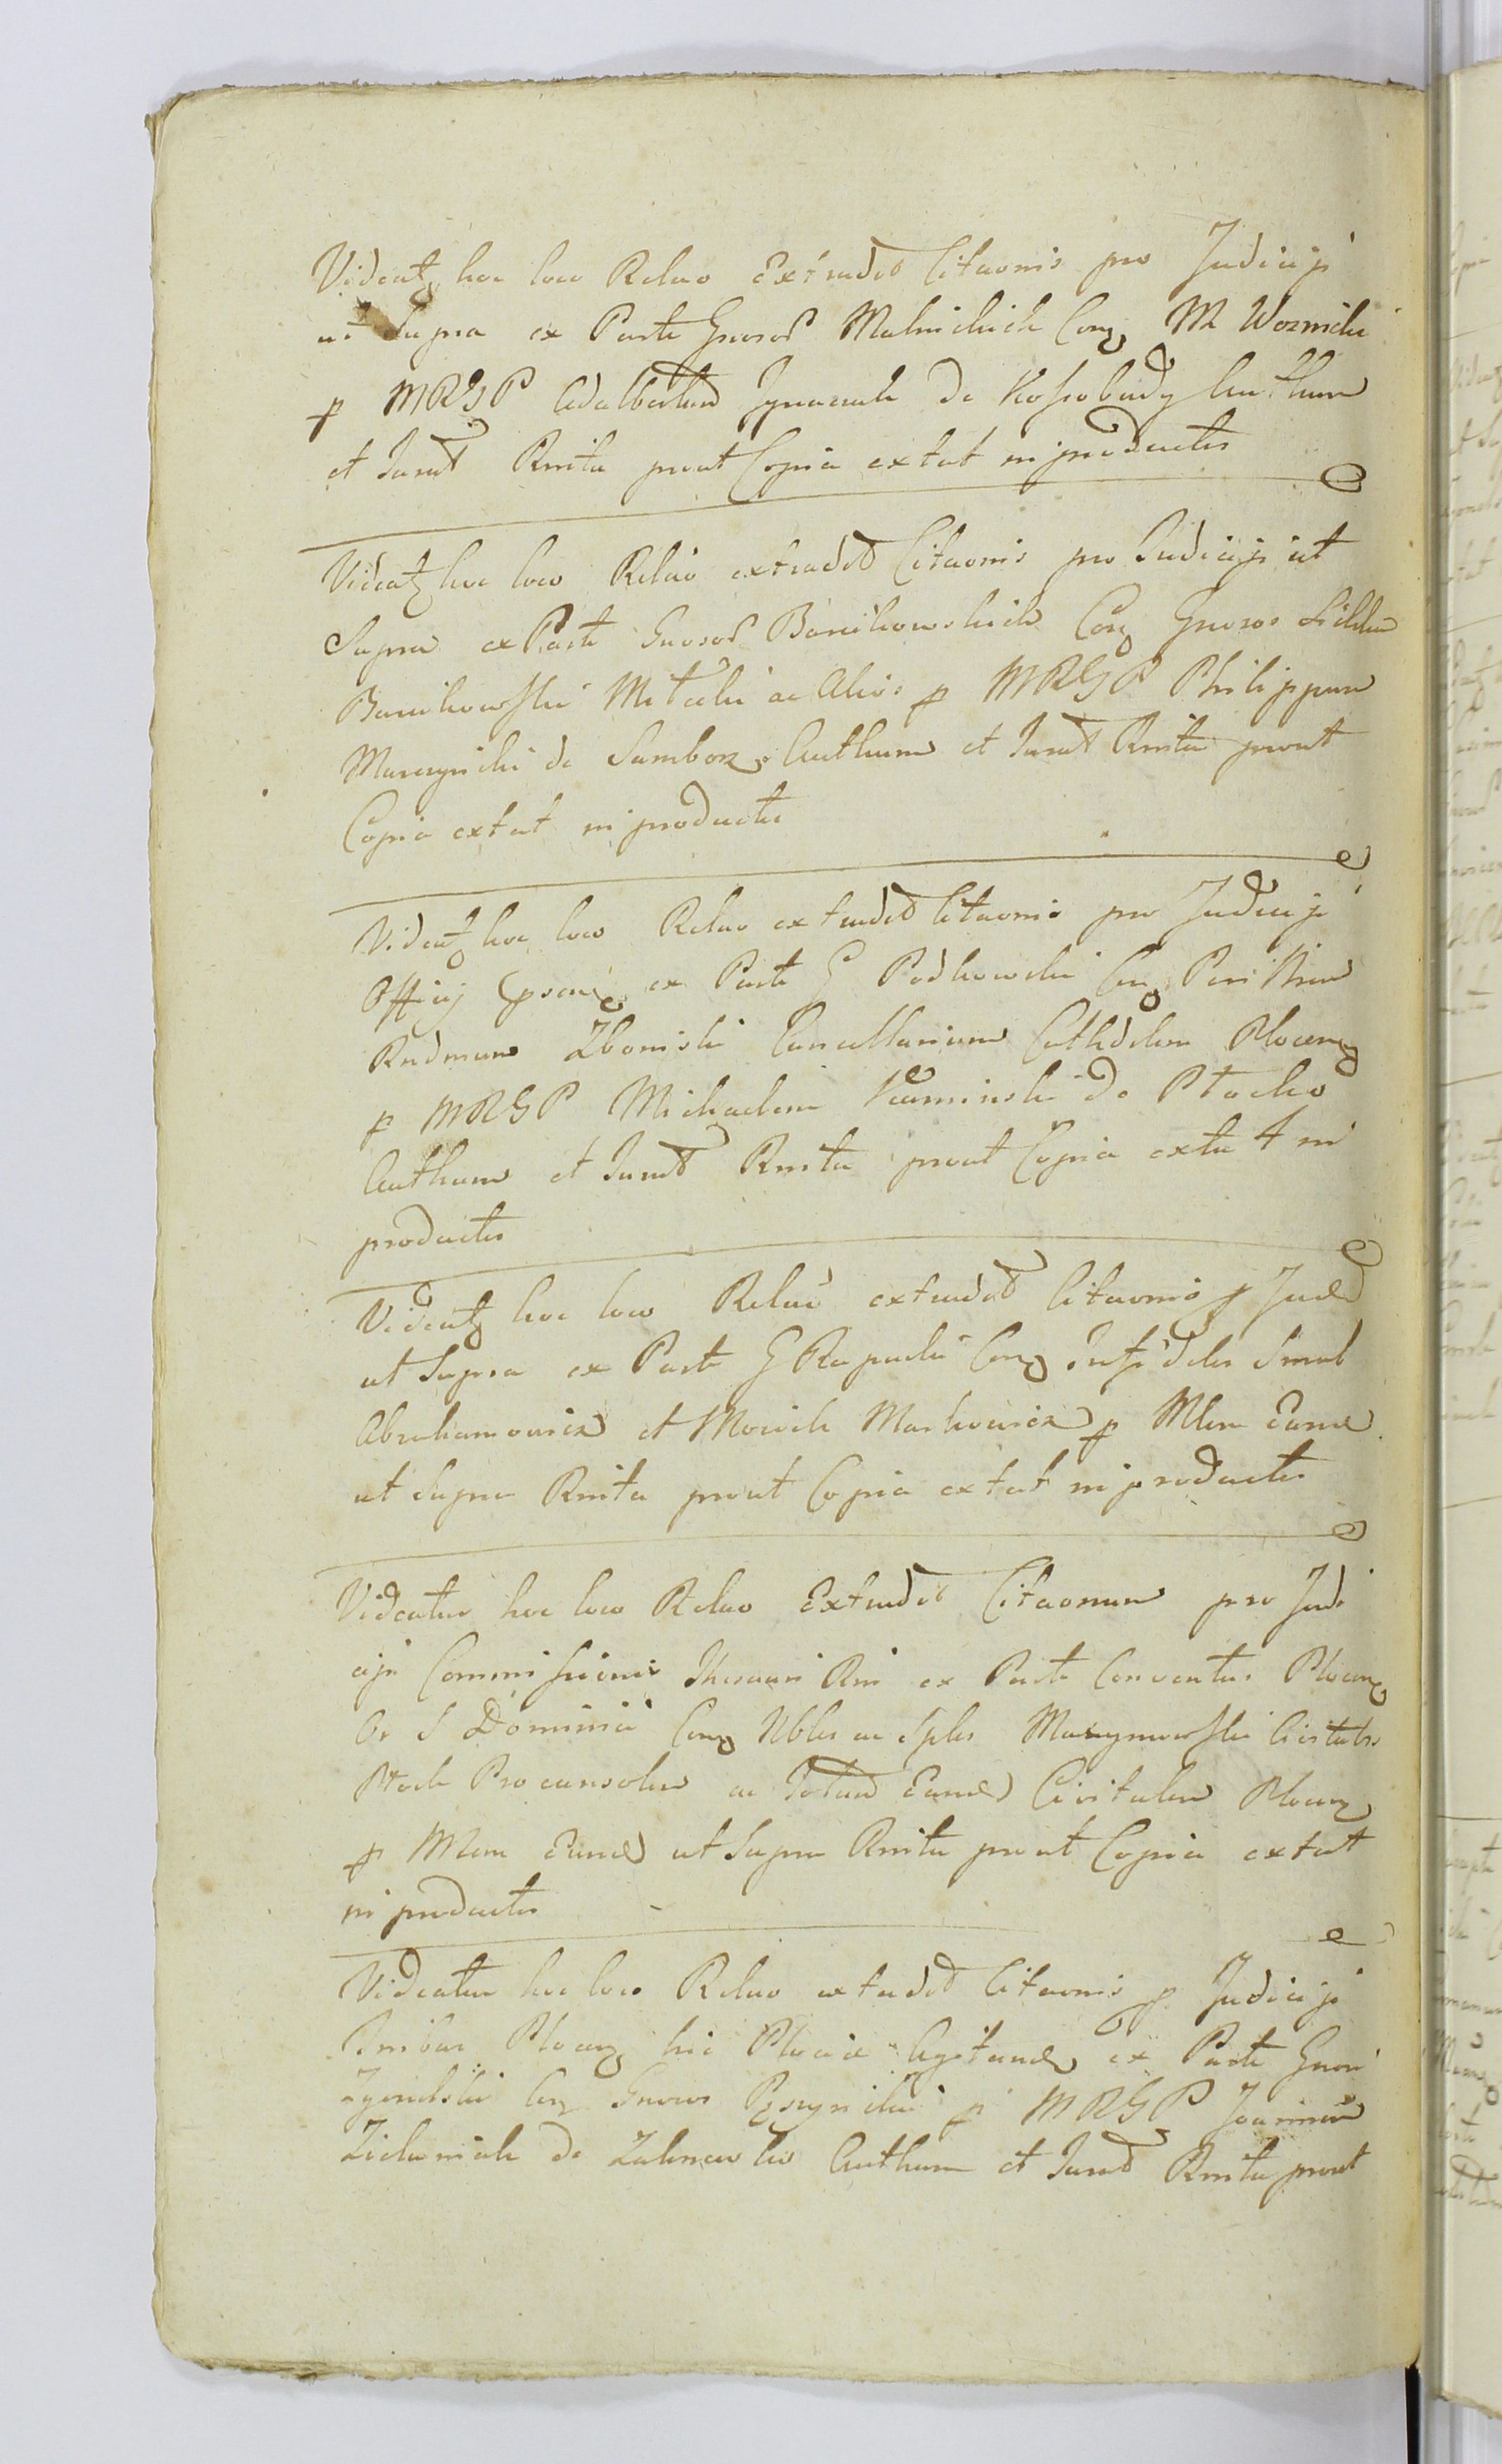 Videatz hoc loco Relao Extradit Citaonis pro Judicijs
ut Supra ex Parte Gnosor Malnickich Conz M Woznicki
p MRGP Adalbertum Ignaciak de Kossobudy Authum
et Jurat Rnita prout Copia extat in productis
Videatz hoc loco Relao extradit Citaonis pro Judicijs ut
Supra ex Parte Gnosor Bonikowskich Conz Gnosos
Bonikowski ac Alios p MRGP Philippum
de Samborz Authum et Jurat Rnita prout
Copia extat in productis
Videatz hoc loco Relao extradit Citaonis pro Judicijs
Officij ex Parte G Podkowski Conz
Rndmum Zboinski Cancellarium Cathdlem Plocenz
p MRGP Michaelem Kaminski de Płocko
Authum et Jurat Rnita prout Copia extat in
productis
Videatz hoc loco Relao extradit Citaonis p Jud
ut Supra ex Parte G Rapacki Conz Infideles Smul
Abrahamowicz et Moisik Markowicz p Mlem Eund
ut Supra Rnita prout Copia extat in productis
Videatur hoc loco Relao Extradit Citaonum pro Judi
cijs Commissionis Thesauri Rni ex Parte Conventus Plocenz
Or S Dominici Conz Nbles ac Sples Civitatis
Płock Proconsolem ac Totam Eund Civitatem Plocenz
p Mlem Eund ut Supra Rnita prout Copia extat
in productis
Videatur hoc loco Relao extradit Citaonis p Judicijs
Plocenz hic Plociæ Agitand ex Parte Gnosi
Conz Gnosos p MRGP Joannem
Zielaniak de Authum et Jurat Rnita prout